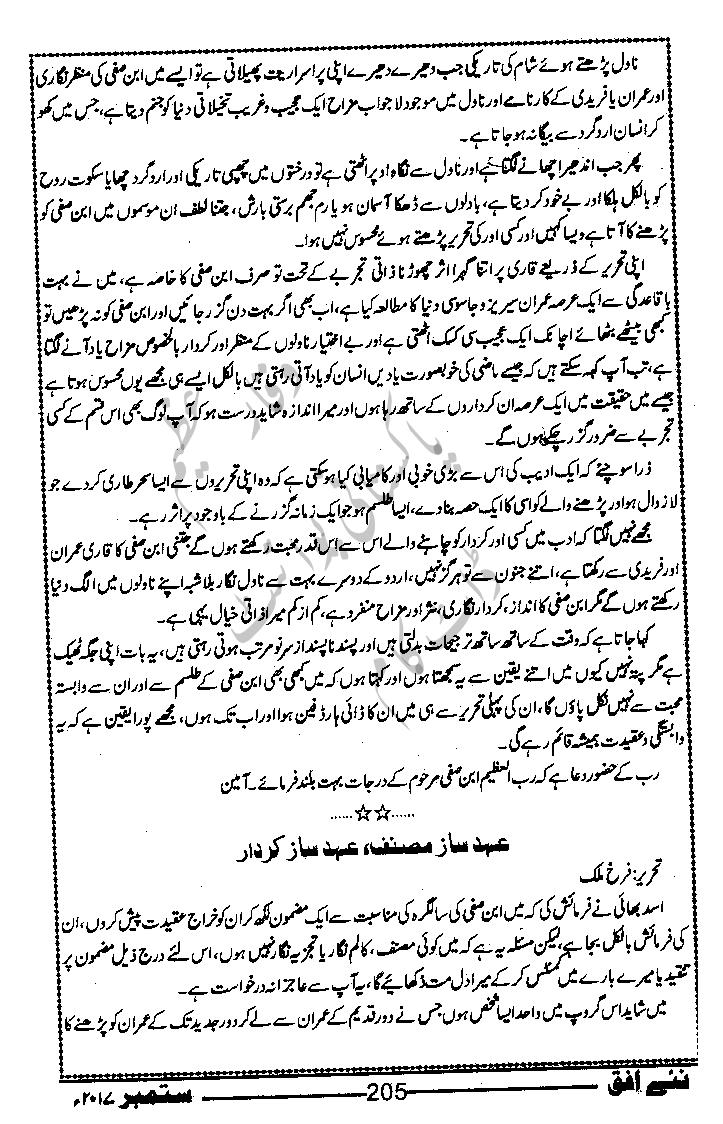 ناول پڑھتے ہوئے شام کی تاریکی جب دھیرے دھیرے اپنی پراسراریت پھیلاتی ہے تو ایسے میں ابن صفی کی منظر نگاری
اور عمران یا فریدی کے کارنامے اور ناول میں موجود لاجواب مزاح ایک عجیب و غریب تخیلاتی دنیا کو جنم دیتا ہے، جس میں کھو
کر انسان اردگرد سے بیگانہ ہو جاتا ہے۔
پھر جب اندھیرا چھانے لگتا ہے اور ناول سے نگاہ اوپر اٹھتی ہے تو درختوں میں چھپی تاریکی اور اردگرد چھایا سکوت روح
کو بالکل ہلکا اور بے خود کر دیتا ہے، بادلوں سے ڈھکا آسمان ہو یا رم جھم برستی بارش، جتنا لطف ان موسموں میں ابن صفی کو
پڑھنے کا آتا ہے ویسا کہیں اور کسی اور کی تحریر پڑھتے ہوئے محسوس نہیں ہوا۔
اپنی تحریر کے ذریعے قاری پر اتنا گہرا اثر چھوڑنا ذاتی تجربے کے تحت تو صرف ابن صفی کا خاصہ ہے، میں نے بہت
باقاعدگی سے ایک عرصہ عمران سیریز و جاسوسی دنیا کا مطالعہ کیا ہے، اب بھی اگر بہت دن گزر جائیں اور ابن صفی کو نہ پڑھیں تو
کبھی بیٹھے بٹھائے اچانک ایک عجیب سی کمک اٹھتی ہے اور بے اختیار ناولوں کے منظر اور کردار بالخصوص مزاح یاد آنے لگتا
ہے، تب آپ کہہ سکتے ہیں کہ جیسے ماضی کی خوبصورت یادیں انسان کو یاد آتی رہتی ہیں بالکل ایسے ہی مجھے یوں محسوس ہوتا ہے
جیسے میں حقیقت میں ایک عرصہ ان کرداروں کے ساتھ رہا ہوں اور میرا اندازہ شاید درست ہو کہ آپ لوگ بھی اس قسم کے کسی
تجربے سے ضرور گزر چکے ہوں گے۔
ذرا سوچئے کہ ایک ادیب کی اس سے بڑی خوبی اور کامیابی کیا ہو سکتی ہے کہ وہ اپنی تحریروں سے ایسا سحر طاری کر دے جو
لازوال ہو اور پڑھنے والے کو اسی کا ایک حصہ بنا دے، ایسا طلسم ہو جو ایک زمانہ گزرنے کے باوجود پراثر رہے۔
مجھے نہیں لگتا کہ ادب میں کسی اور کردار کو چاہنے والے اس سے اس قدر محبت رکھتے ہوں گے جتنی ابن صفی کا قاری عمران
اور فریدی سے رکھتا ہے، اتنے جنون سے تو ہرگز نہیں، اردو کے دوسرے بہت سے ناول نگار بلاشبہ اپنے ناولوں میں الگ دنیا
رکھتے ہوں گے مگر ابن صفی کا انداز، کردار نگاری، نثر اور مزاح منفرد ہے، کم از کم میرا ذاتی خیال یہی ہے۔
کہا جاتا ہے کہ وقت کے ساتھ ساتھ ترجیحات بدلتی ہیں اور پسند ناپسند از سر نو مرتب ہوتی رہتی ہیں، یہ بات اپنی جگہ ٹھیک
ہے مگر پتہ نہیں کیوں میں اتنے یقین سے یہ سمجھتا ہوں اور کہتا ہوں کہ میں کبھی بھی ابن صفی کے طلسم سے اور ان سے وابستہ
محبت سے نہیں نکل پاؤں گا، ان کی پہلی تحریر سے ہی میں ان کا ڈائی ہارڈ فین ہوا اور اب تک ہوں، مجھے پورا یقین ہے کہ یہ
وابستگی و عقیدت ہمیشہ قائم رہے گی۔
رب کے حضور دعا ہے کہ رب العظیم ابن صفی مرحوم کے درجات بہت بلند فرمائے۔ آمین
......☆☆......
عہد ساز مصنف، عہد ساز کردار
تحریر: فرخ ملک
اسد بھائی نے فرمائش کی کہ میں ابن صفی کی سالگرہ کی مناسبت سے ایک مضمون لکھ کر ان کو خراج عقیدت پیش کروں، ان
کی فرمائش بالکل بجا ہے، لیکن مسئلہ یہ ہے کہ میں کوئی مصنف، کالم نگار یا تجزیہ نگار نہیں ہوں، اس لئے درج ذیل مضمون پر
تنقید یا میرے بارے میں کمنٹس کر کے میرا دل مت دکھائے گا، یہ آپ سے عاجزانہ درخواست ہے۔
میں شاید اس گروپ میں واحد ایسا شخص ہوں جس نے دور قدیم کے عمران سے لے کر دور جدید تک کے عمران کو پڑھنے کا
نئے افق
205
ستمبر ۲۰۱۷ء
پاکستانی پوائنٹ
ڈاٹ کام